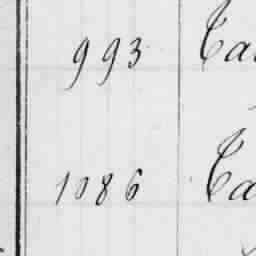 993 Ca
1086 Ca